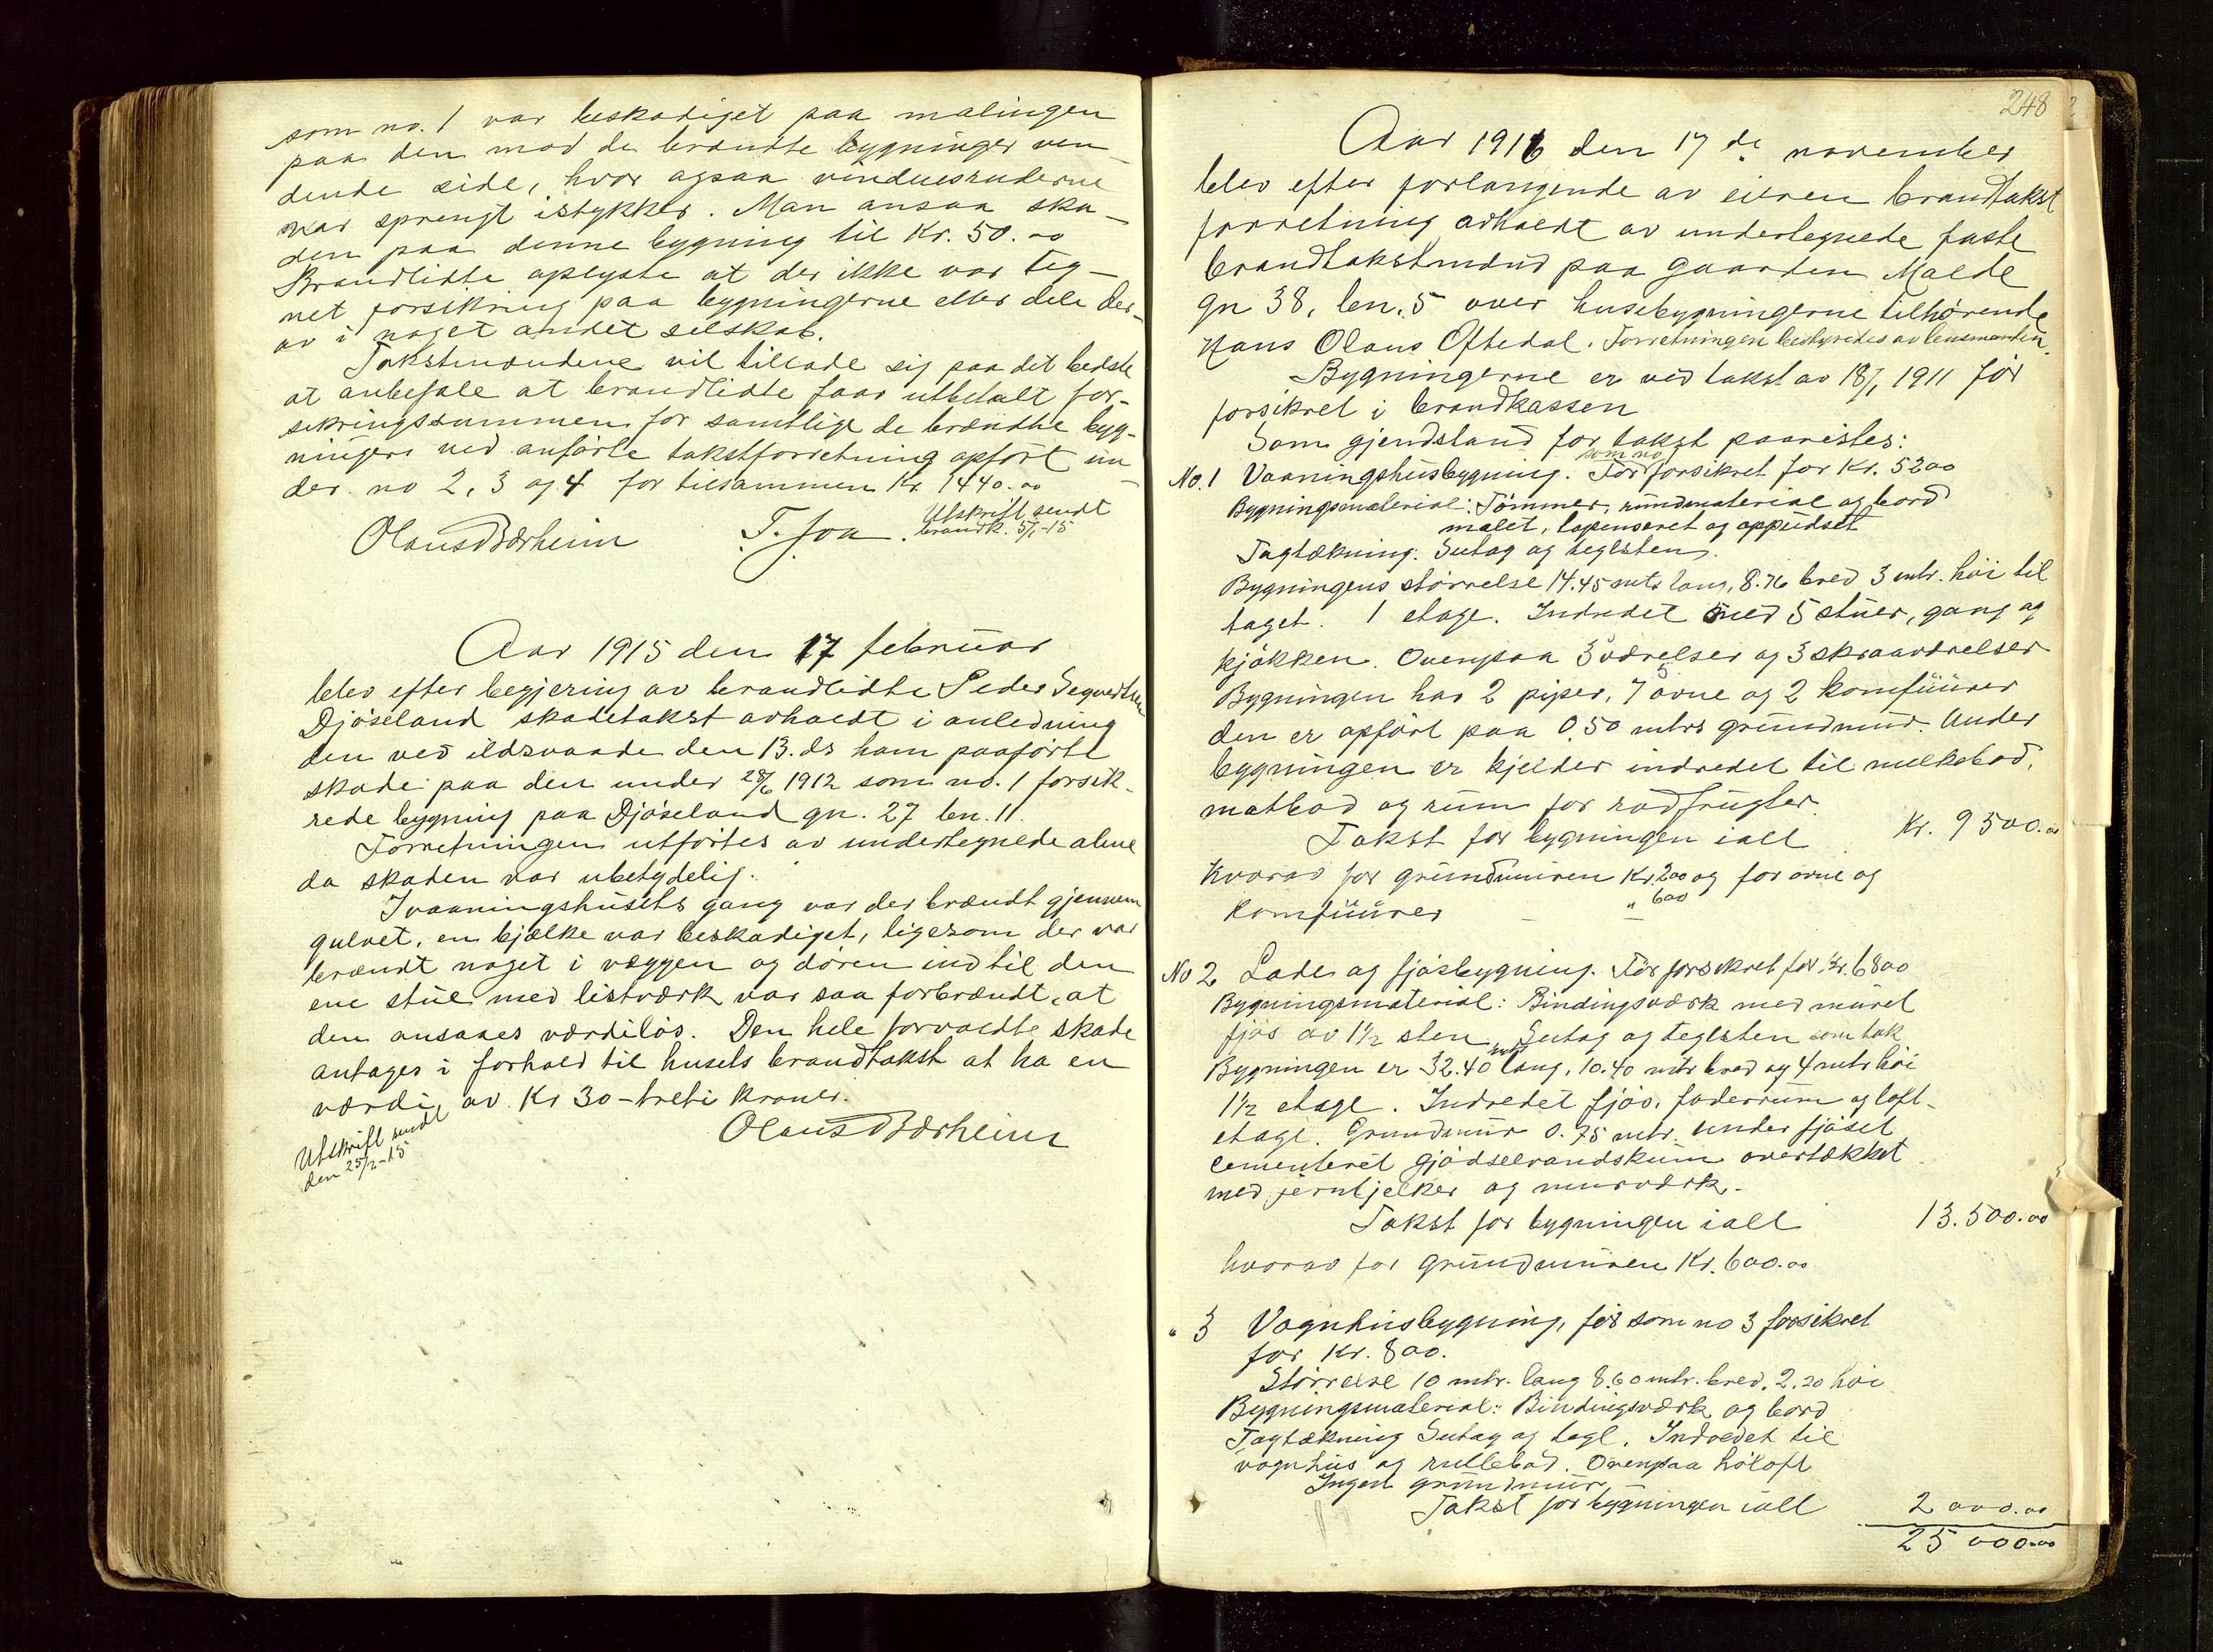 som no. 1 var beskadiget paa malingen
paa den mod de brændte bygninger ven-
dende side, hvor ogsaa vinduesruderne
var sprengt istykker. Man ansaa ska-
den paa denne bygning til Kr. 50.00
Brandlidte oplyste at der ikke var teg-
net forsikring paa bygningerne eller dele der-
av i noget andet selskab.
Takstmændene vil tillade sig paa det bedste
at anbefale at brandlidte faar utbetalt for-
sikringssummen for samtlige de brændte byg-
ninger ved anførte takstforretning opført un-
der no 2, 3 og 4 for tilsammen Kr. 1440.00
Utskrift sendt
brandk. 5/1-15
Olaus Bærheim T. Joa
Aar 1915 den 17 februar
blev efter begjering av brandlidte Peder
Djøseland skadetakst avholdt i anledning
den ved ildsvaade den 13. ds ham paaførte
skade paa den under 28/6 1912 som no. 1 forsik-
rede bygning paa Djøseland gn. 27 bn. 11.
Forretningen utførtes av undertegnede alene
da skaden var ubetydelig.
I vaaningshusets gang var der brændt gjennem
gulvet, en bjælke var beskadiget, ligesom der var
brændt noget i væggen og døren ind til den
ene stue med listværk var saa forbrændt, at
den ansaaes værdiløs. Den hele forvoldte skade
antages i forhold til husets brandtakst at ha en
værdi av Kr 30 - treti kroner.
Olaus Bærheim
Utskrift sendt
den 25/2-15
248
Aar 1916 den 17de november
blev efter forlangende av eieren brandtakst
forretning avholdt av undertegnede faste
brandtakstmænd paa gaarden Malde
gn 38, bn. 5 over husebygningerne tilhørende
Hans Olaus Oftedal. Forretningen bestyredes av lensmanden.
Bygningerne er ved takst av 18/1 1911 før
forsikret i brandkassen
Som gjendstand for takst paavistes:
som no
No. 1 Vaaningshusbygning. Før forsikret for Kr. 5200
Bygningsmaterial: Tømmer, rundmaterial og bord
malet, tapenseret og oppudset
Tagtækning: Sutag og teglsten.
Bygningens størrelse 14.45 mtr lang, 8.76 bred 3 mtr. høi til
taget. 1 etage. Indredet med 5 stuer, gang og
kjøkken. Ovenpaa 3 værelser og 3 skraaværelser
Bygningen har 2 piper, 7 ovne og 2 komfuurer
den er opført paa 0.50 mtrs grundmur. Under
bygningen er kjelder indredet til melkebod,
matbod og rum for rodfrugter.
Takst for bygningen ialt Kr. 9500.00
Hvorav for grundmuren Kr. 200 og for ovne og
komfuurer " 600
No 2 Lade og fjøsbygning. Før forsikret for Kr. 6800
Bygningsmaterial: Bindingsværk med muret
fjøs av 1½ sten, Sutag og teglsten som tak
Bygningen er 32.40 mtr lang, 10.40 mtr bred og 4 mtr høi
1½ etage. Indredet fjøs, foderrum og loft-
etage. Grundmur 0.75 mtr. under fjøset
cementeret gjødselvandskum overtækket
med jernbjelker og murværk.
Takst for bygningen ialt 13.500.00
hvorav for grundmuren Kr. 600.00
" 3 Vognhusbygning, før som no 3 forsikret
for Kr. 800.
Størrelse 10 mtr. lang 8.60 mtr. bred, 2.20 høi
Bygningsmaterial: Bindingsværk og bord
Tagtækning Sutag og tegl. Indredet til
vognhus og rullebod. Ovenpaa høloft
Ingen grundmur
Takst for bygningen ialt 2000.00
25000.00